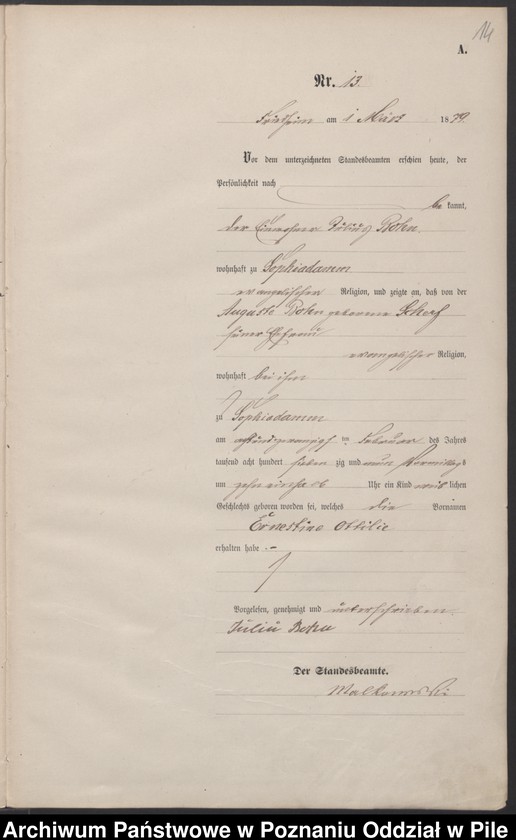 14
A.
Nr. 13.
am 1 März 1879.
Vor dem unterzeichneten Standesbeamten erschien heute, der
Persönlichkeit nach
be kannt,
der Einwohner Julius Bohn
wohnhaft zu Sophiadamm
evangelischen Religion, und zeigte an, daß von der
Auguste Bohn geborenen
seiner Ehefrau
evangelischer Religion,
wohnhaft bei ihm
zu Sophiadamm
am achtundzwanzigsten Februar des Jahres
tausend acht hundert sieben zig und neun Vormittags
um zehn Uhr ein Kind weib lichen
Geschlechts geboren worden sei, welches die Vornamen
Ernestine Ottilie
erhalten habe.
Vorgelesen, genehmigt und unterschrieben
Bohn
Der Standesbeamte.
Malkowski
Archiwum Państwowe w Poznaniu Oddział w Pile